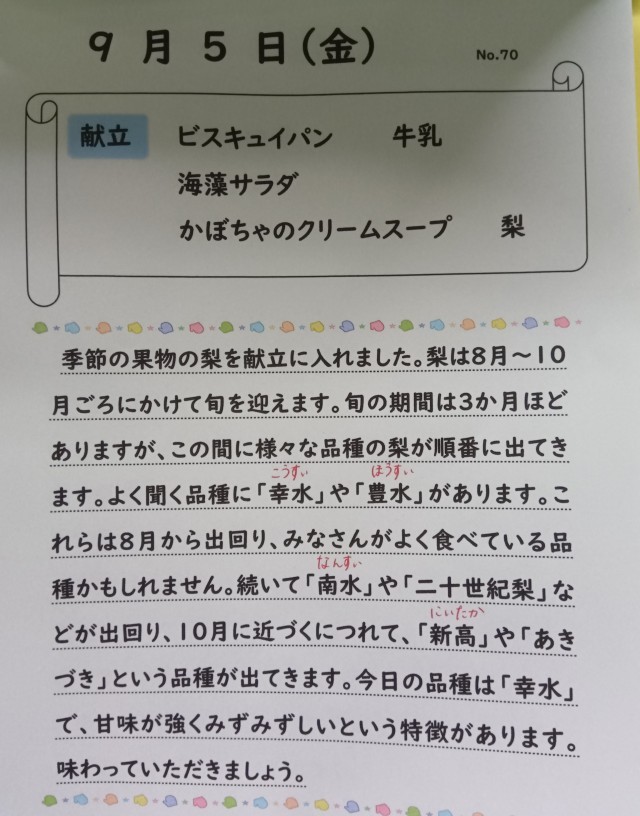 9月5日(金)
No.70
献立 ビスキュイパン 牛乳
海藻サラダ
かぼちゃのクリームスープ 梨
季節の果物の梨を献立に入れました。梨は8月～10
月ごろにかけて旬を迎えます。旬の期間は3か月ほど
ありますが、この間に様々な品種の梨が順番に出てき
こうすい ほうすい
ます。よく聞く品種に「幸水」や「豊水」があります。こ
れらは8月から出回り、みなさんがよく食べている品
なんすい
種かもしれません。続いて「南水」や「二十世紀梨」な
にいたか
どが出回り、10月に近づくにつれて、「新高」や「あき
づき」という品種が出てきます。今日の品種は「幸水」
で、甘味が強くみずみずしいという特徴があります。
味わっていただきましょう。